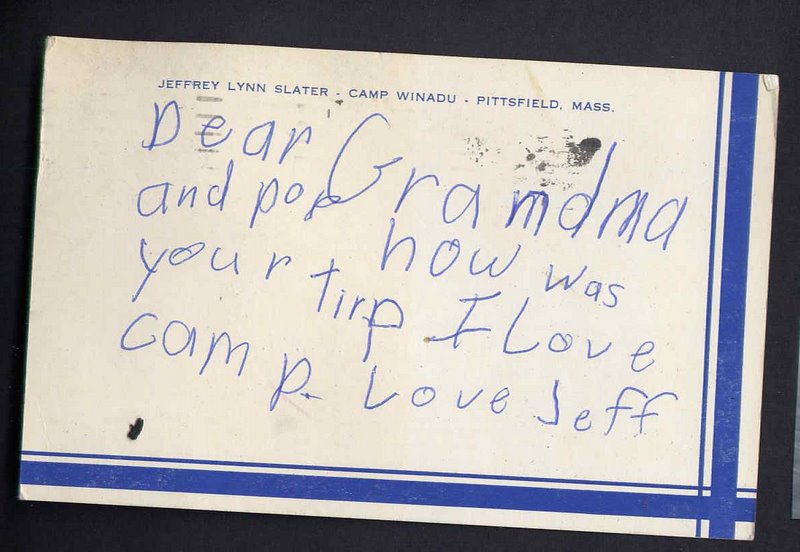 JEFFREY LYNN SLATER - CAMP WINADU - PITTSFIELD, MASS.
Dear Gramdma
and pop how was
your tirp I Love
camp. Love Jeff